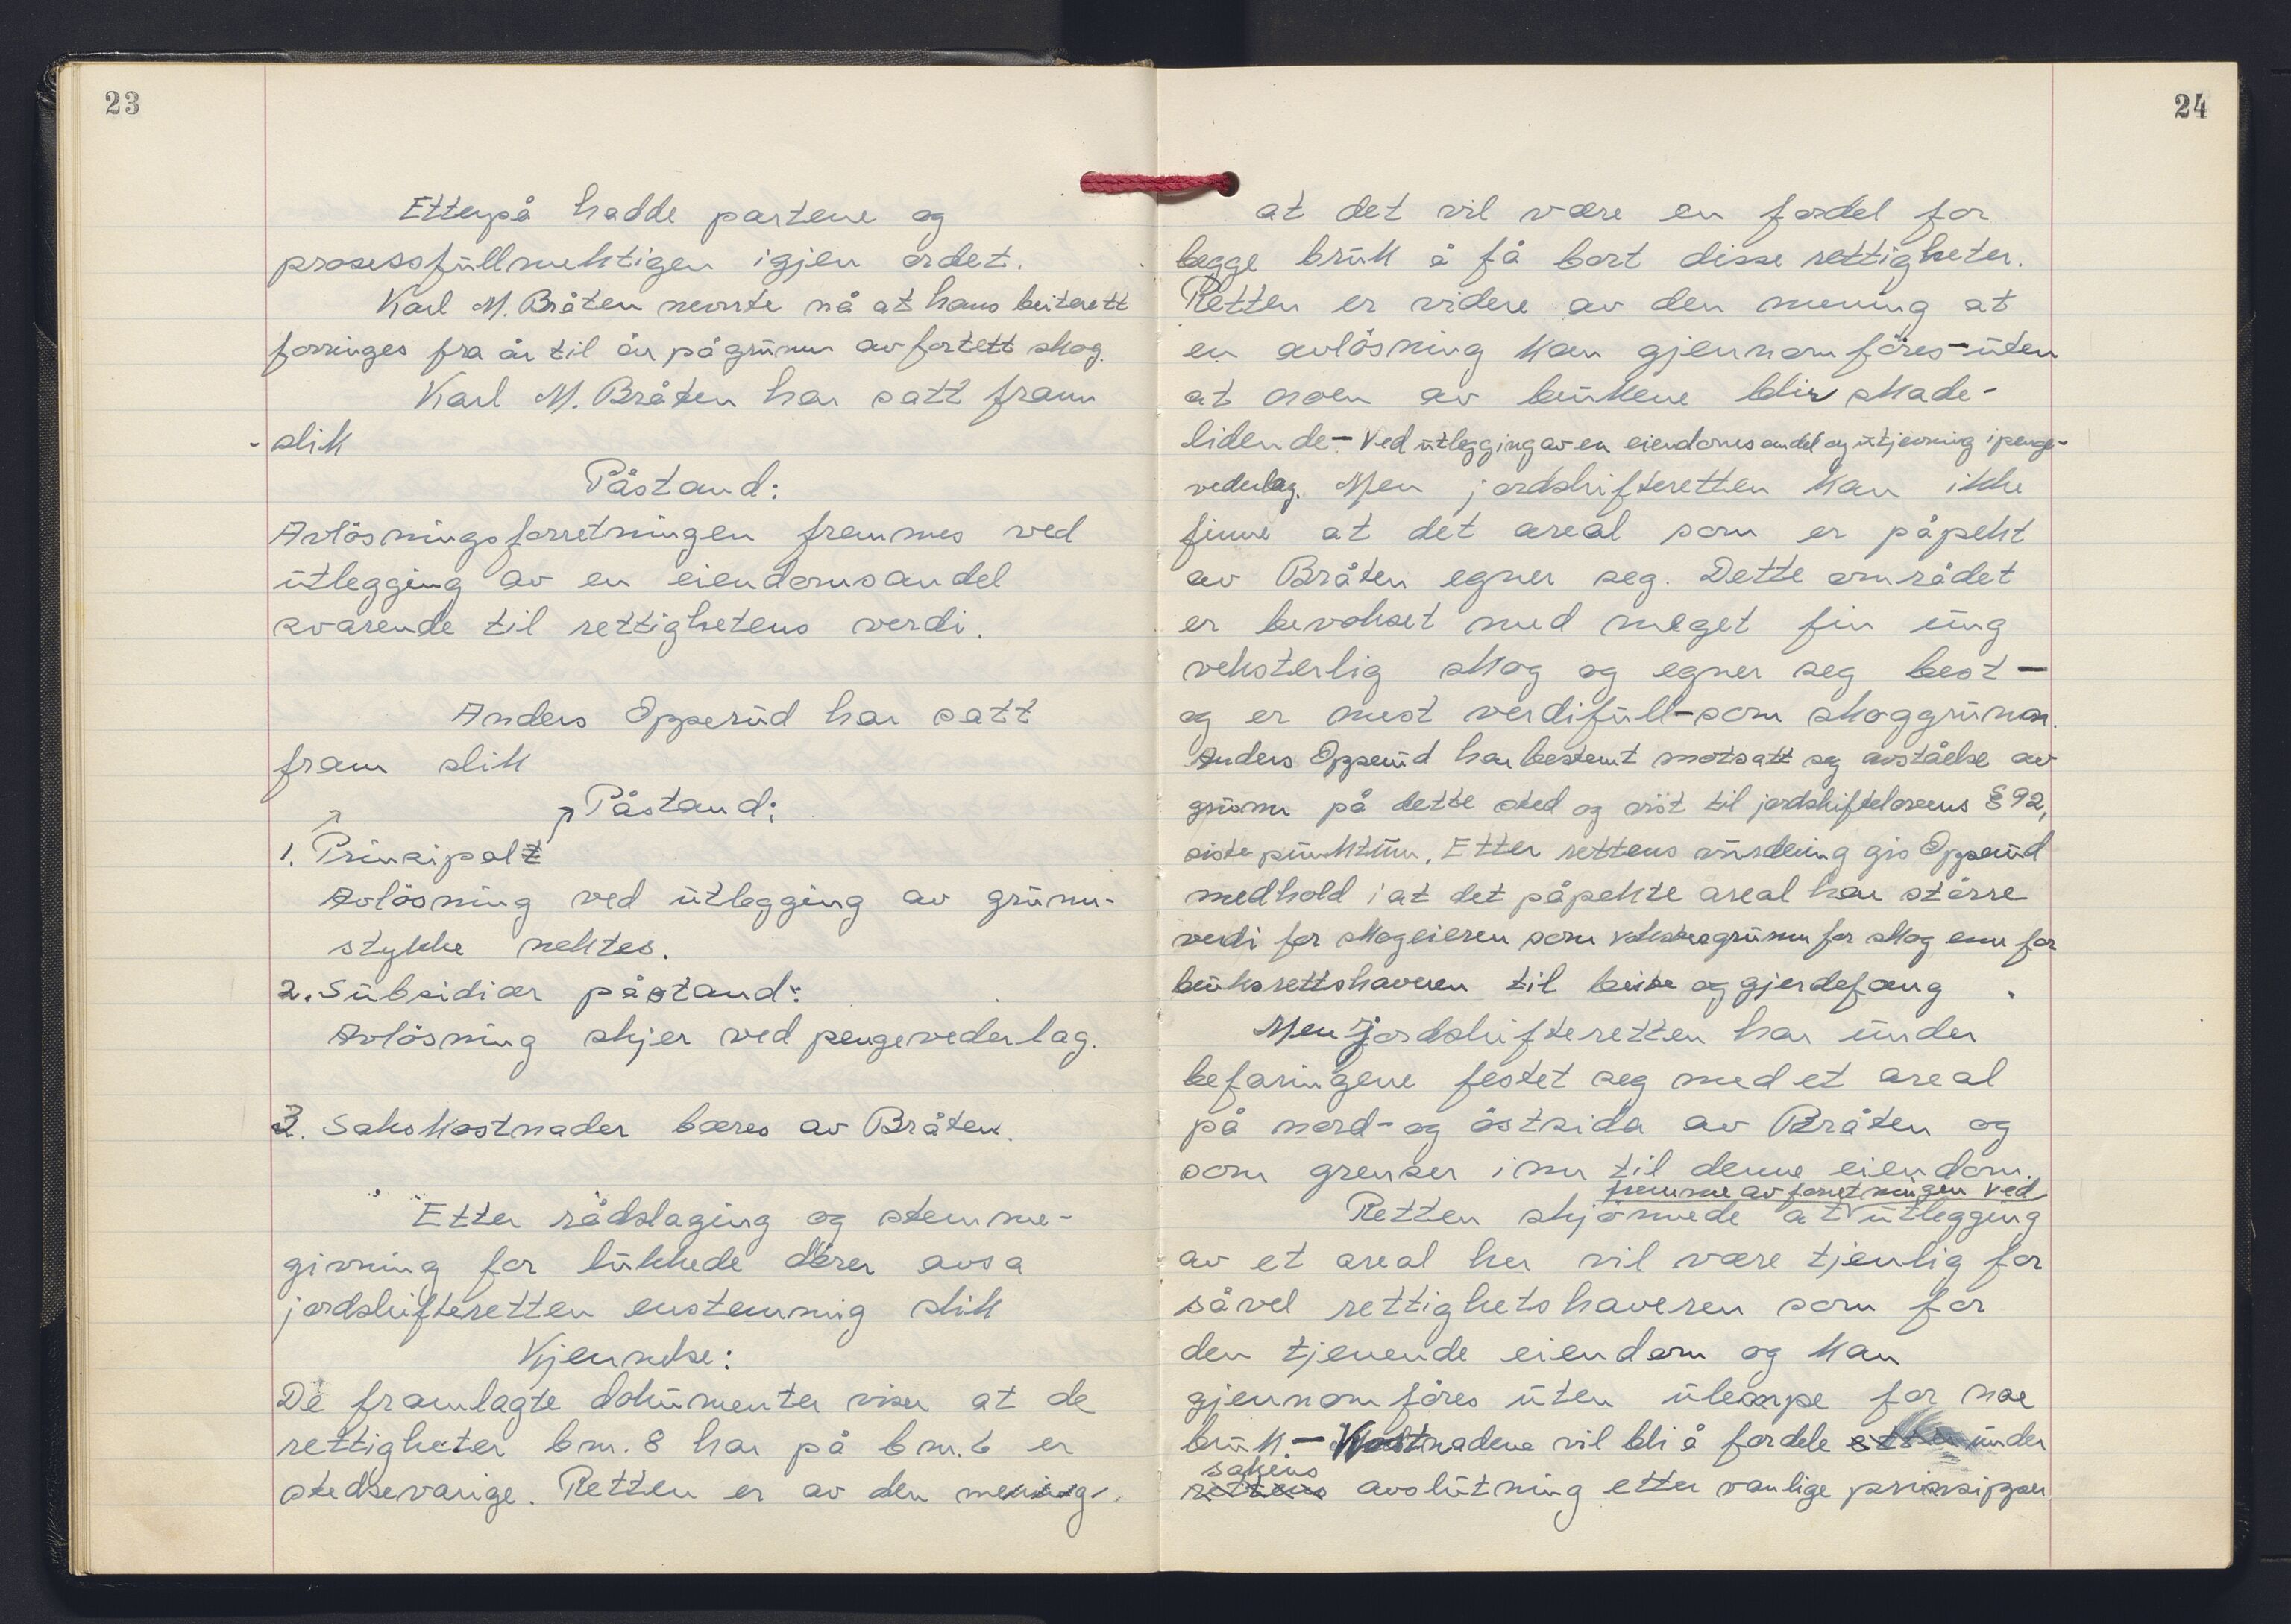 23
Etterpå hadde partene og
prosessfullmektigen igjen ordet.
Karl M. Bråten nevnte nå at hans beiterett
forringes fra år til år på grunn av fortett skog.
Karl M. Bråten har satt fram
slik
Påstand:
Avlösningsforretningen fremmes ved
utlegging av en eiendomsandel
svarende til rettighetens verdi.
Anders Opperud har satt
fram slik
Påstand:
1. Prinsipalt
Avlösning ved utlegging av grunn-
stykke nektes.
2. Subsidiær påstand:
Avlösning skjer ved pengevederlag.
3. Sakskostnader bæres av Bråten.
Etter rådslaging og stemme-
givning for lukkede dörer avsa
jordskifteretten enstemmig slik
Kjennelse:
De framlagte dokumenter viser at de
rettigheter bnr. 8 har på bnr. 6 er
stedsevarige. Retten er av den mening
24
at det vil være en fordel for
begge bruk å få bort disse rettigheter.
Retten er videre av den mening at
en avlösning kan gjennomföres - uten
at noen av brukene blir skade-
lidende - ved utlegging av en eiendomsandel og utjevning i penge-
vederlag. Men jordskifteretten kan ikke
finne at det areal som er påpekt
av Bråten egner seg. Dette området
er bevokset med meget fin ung
veksterlig skog og egner seg best -
og er mest verdifull - som skoggrunn.
Anders Opperud har bestemt motsatt seg avståelse av
grunn på dette sted og vist til jordskiftelovens § 92,
siste punktum. Etter rettens vurdering gis Opperud
medhold i at det påpekte areal har större
verdi for skogeieren som voksegrunn for skog enn for
bruksrettshaveren til beite og gjerdefang.
Men jordskifteretten har under
befaringene festet seg med et areal
på nord- og östsida av Bråten og
som grenser inn til denne eiendom.
fremme av forretningen ved
Retten skjönnede at utlegging
av et areal her vil være tjenlig for
såvel rettighetshaveren som for
den tjenende eiendom og kan
gjennomföres uten ulempe for noe
bruk - Kostnadene vil bli å fordele etter under
sakens
rettens avslutning etter vanlige prinsipper